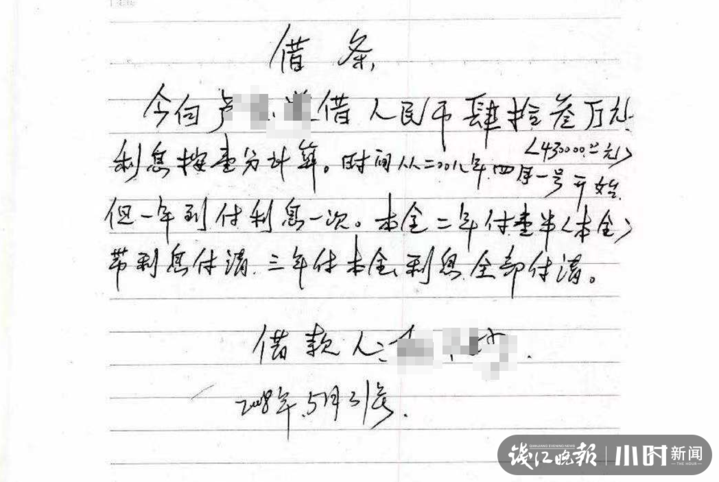 借条
今向卢 借人民币肆拾叁万元
〈430000.00元〉
利息按壹分计算。时间从二00八年.四月一号开始
但一年到付利息一次。本金二年付壹半〈本金〉
带利息付清.三年付本金利息全部付清。
借款人:
2008年.5月31号.
钱江晚报 小时新闻